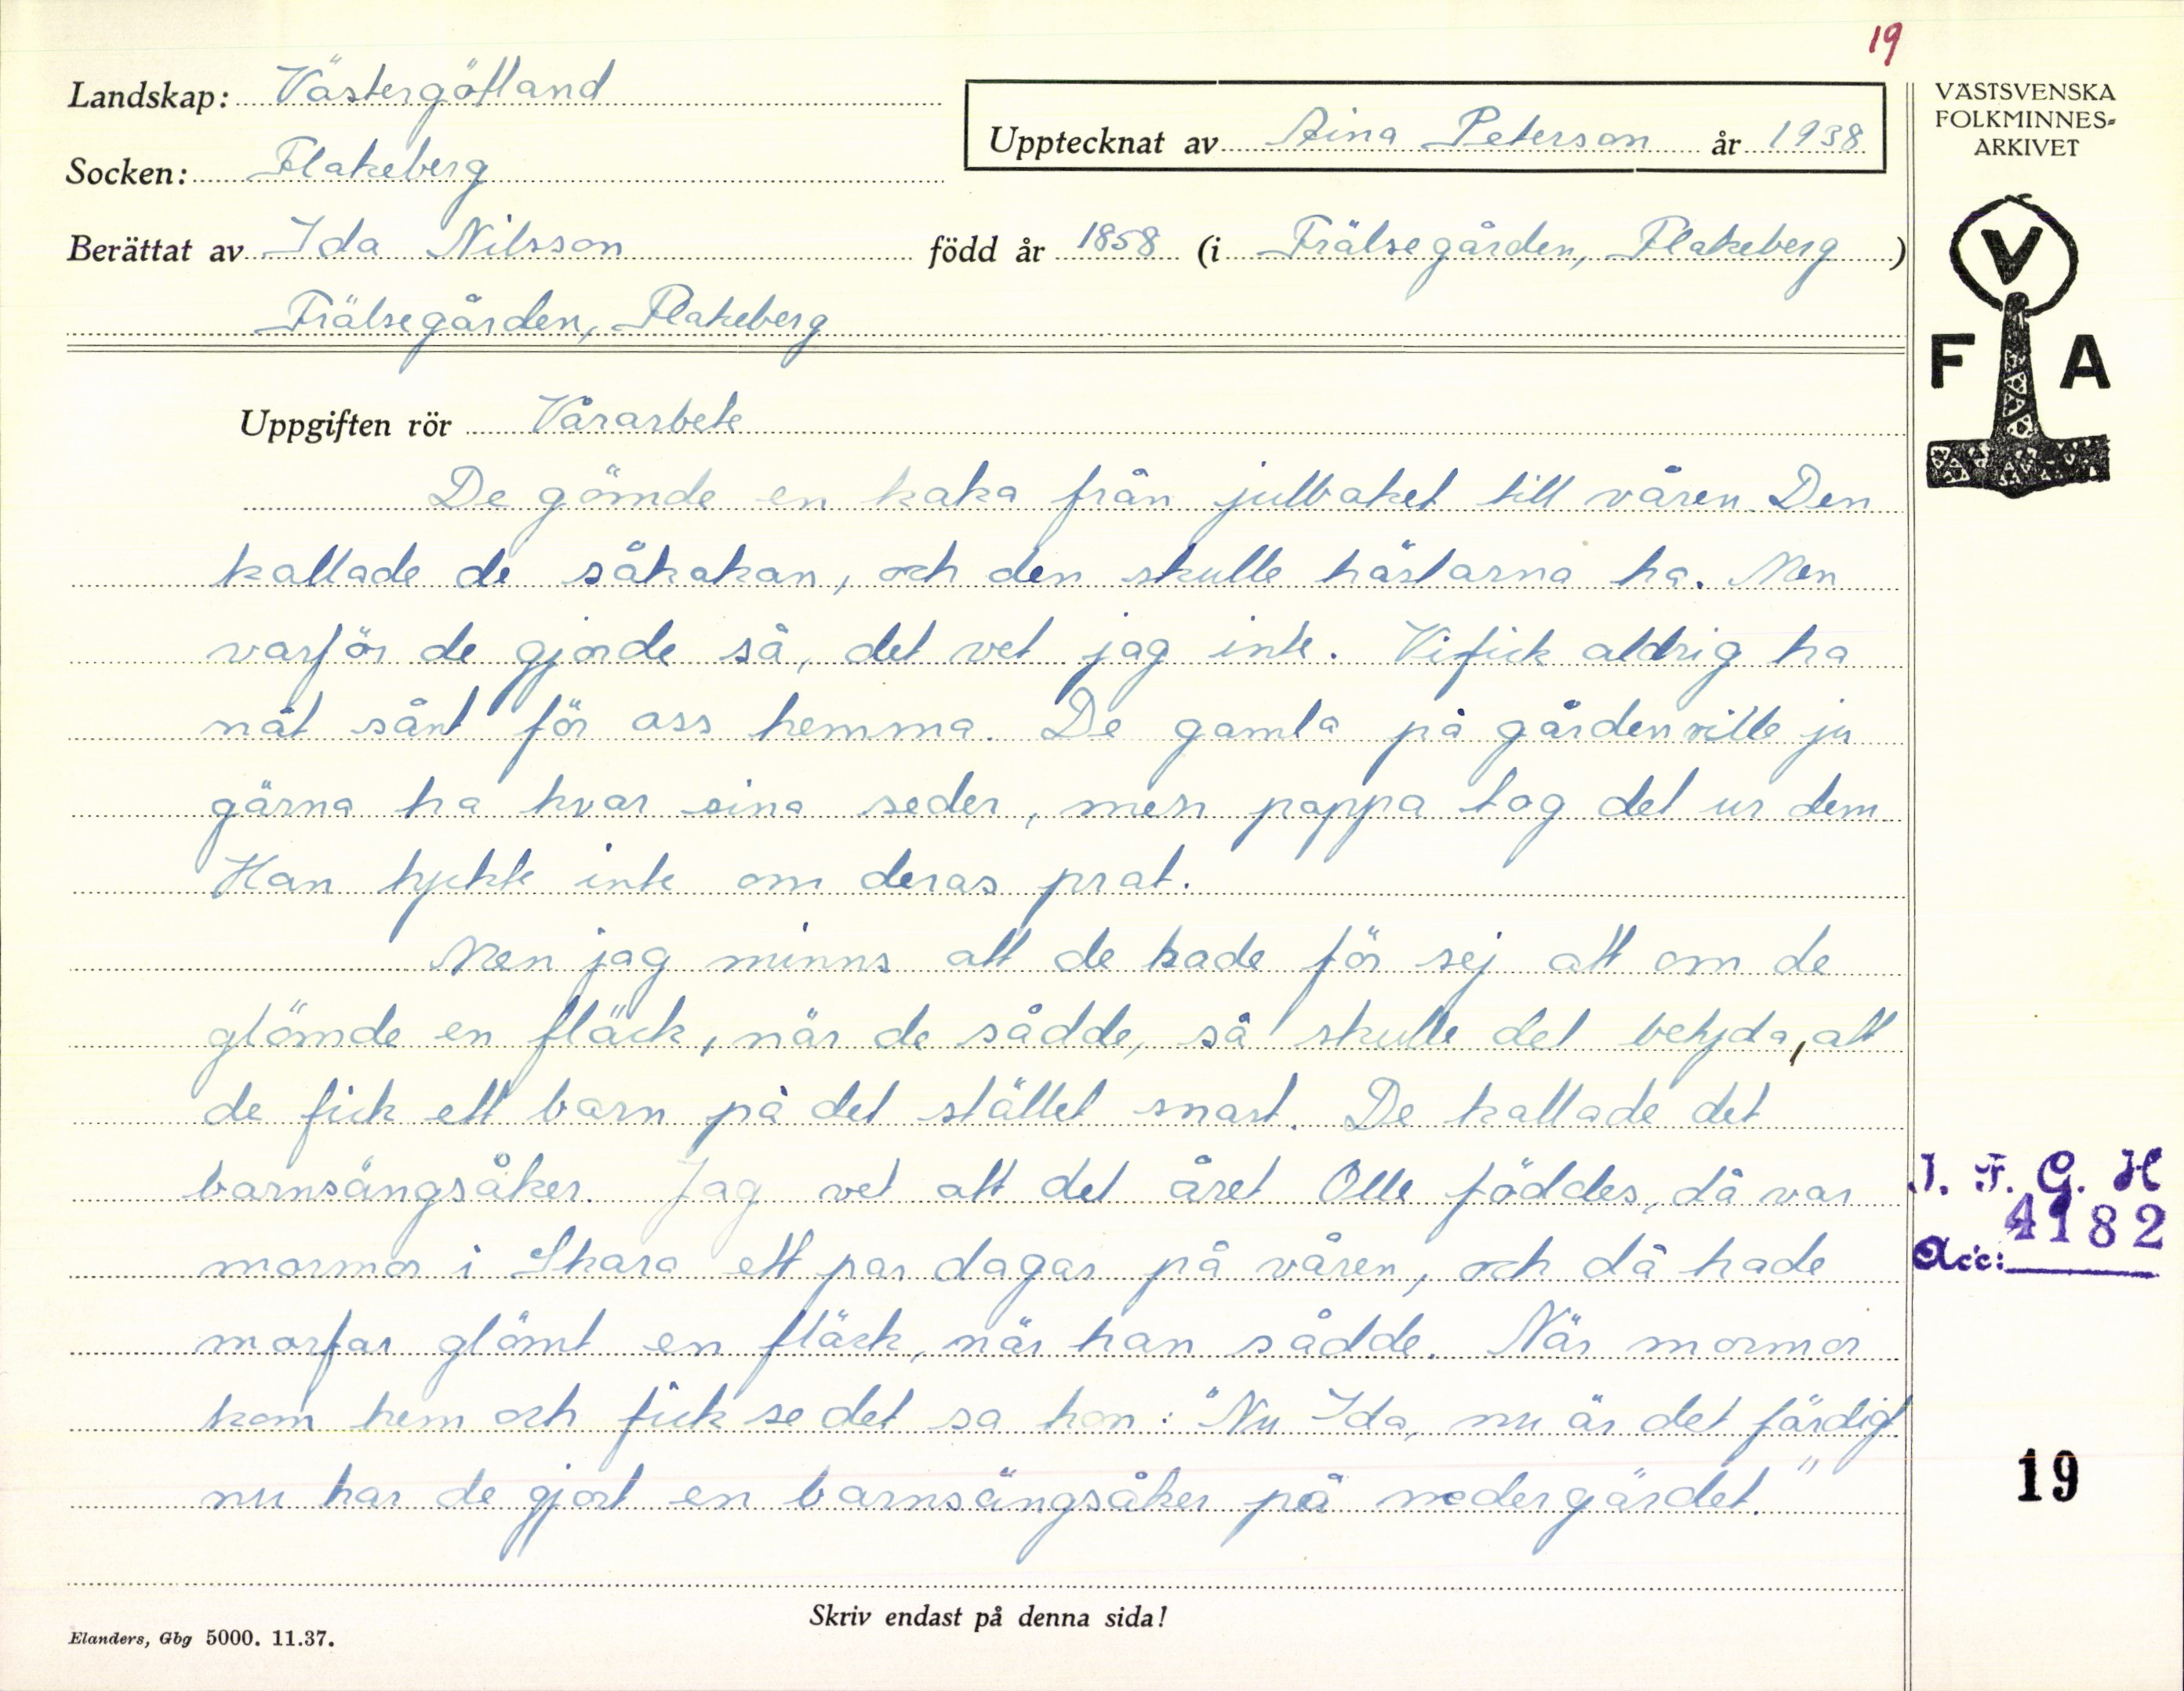 19
Landskap: Västergötland
Upptecknat av Aina Peterson år 1938
Socken: Flakeberg
Berättat av Ida Nilsson född år 1858 (i Frälsegården, Flakeberg)
Frälsegården, Flakeberg
VÄSTSVENSKA
FOLKMINNES-
ARKIVET
V
F A
Uppgiften rör Vårarbete
De gömde en kaka från julbaket till våren. Den
kallade de såkakan, och den skulle hästarna ha. Men
varför de gjorde så, det vet jag inte. Vi fick aldrig ha
nåt sånt för oss hemma. De gamla på gården ville ju
gärna ha hvar sina seder, men pappa tog det ur dem.
Han tyckte inte om deras prat.
Men jag minns att de hade för sej att om de
glömde en fläck, när de sådde, så skulle det betyda, att
de fick ett barn på det stället snart. De kallade det
barnsängsåker. Jag vet att det året Olle föddes, då var
mormor i Skara ett par dagar på våren, och då hade
morfar glömt en fläck, när han sådde. När mormor
kom hem och fick se det sa hon: "Nu Ida, nu är det färdigt
nu har de gjort en barnsängsåker på nedergärdet."
I. F. G. H
Acc: 4182
19
Skriv endast på denna sida!
Elanders, Gbg 5000. 11.37.